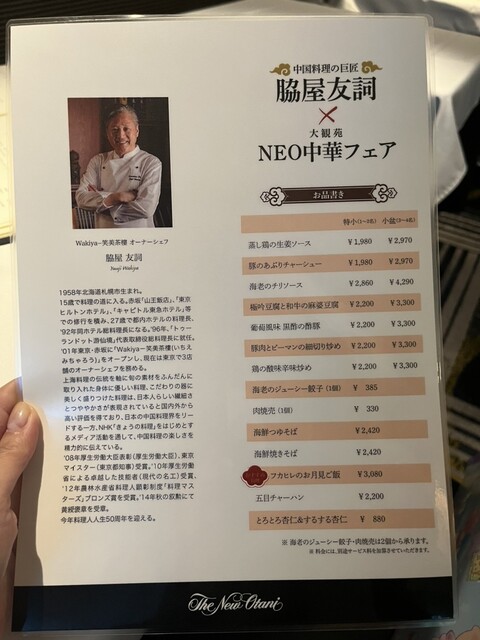 中国料理の巨匠
脇屋友詞
×
大観苑
NEO中華フェア
お品書き
特小(1~2名) 小盆(3~4名)
蒸し鶏の生姜ソース ¥1,980 ¥2,970
豚のあぶりチャーシュー ¥1,980 ¥2,970
海老のチリソース ¥2,860 ¥4,290
極吟豆腐と和牛の麻婆豆腐 ¥2,200 ¥3,300
葡萄風味 黒酢の酢豚 ¥2,200 ¥3,300
豚肉とピーマンの細切り炒め ¥2,200 ¥3,300
鶏の酸味辛味炒め ¥2,200 ¥3,300
海老のジューシー餃子(1個) ¥ 385
肉焼売(1個) ¥ 330
海鮮つゆそば ¥2,420
海鮮焼きそば ¥2,420
フカヒレのお月見ご飯 ¥3,080
五目チャーハン ¥2,200
とろとろ杏仁&するする杏仁 ¥ 880
※ 海老のジューシー餃子・肉焼売は2個から承ります。
※ 料金には、別途サービス料を加算させていただきます。
Wakiya一笑美茶樓 オーナーシェフ
脇屋 友詞
Yuji Wakiya
1958年北海道札幌市生まれ。
15歳で料理の道に入る。赤坂「山王飯店」、「東京
ヒルトンホテル」、「キャピトル東急ホテル」等
での修行を積み、27歳で都内ホテルの料理長、
'92年同ホテル総料理長になる。'96年、「トゥー
ランドット游仙境」代表取締役総料理長に就任。
'01年東京・赤坂に「Wakiya一笑美茶樓(いちえ
みちゃろう)」をオープンし、現在は東京で3店
舗のオーナーシェフを務める。
上海料理の伝統を軸に旬の素材をふんだんに
取り入れた身体に優しい料理、こだわりの器に
美しく盛りつけた料理は、日本人らしい繊細さ
とつややかさが表現されていると国内外から
高い評価を得ており、日本の中国料理界をリー
ドする一方、NHK「きょうの料理」をはじめとす
るメディア活動を通して、中国料理の楽しさを
精力的に伝えている。
'08年厚生労働大臣表彰(厚生労働大臣)、東京
マイスター(東京都知事)受賞。'10年厚生労働
省による卓越した技能者(現代の名工)受賞、
'12年農林水産省料理人顕彰制度「料理マス
ターズ」ブロンズ賞を受賞。'14年秋の叙勲にて
黄綬褒章を受章。
今年料理人人生50周年を迎える。
The New Otani